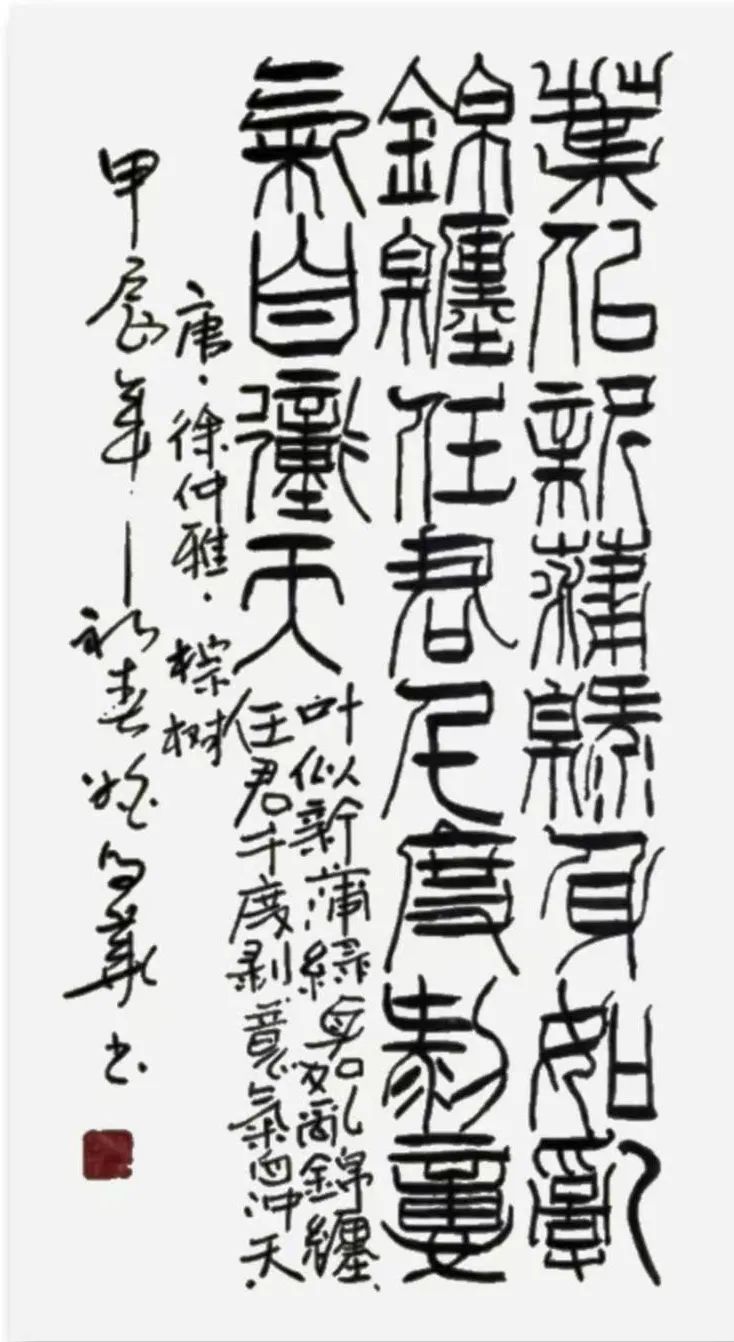 葉佀新蒲綠身如亂
錦纏任君千度剝意
氣自衝天
叶似新蒲綠身如乱錦纏.
任君千度剥意氣自冲天.
唐·徐仲雅·棕树
甲辰年一初春 书